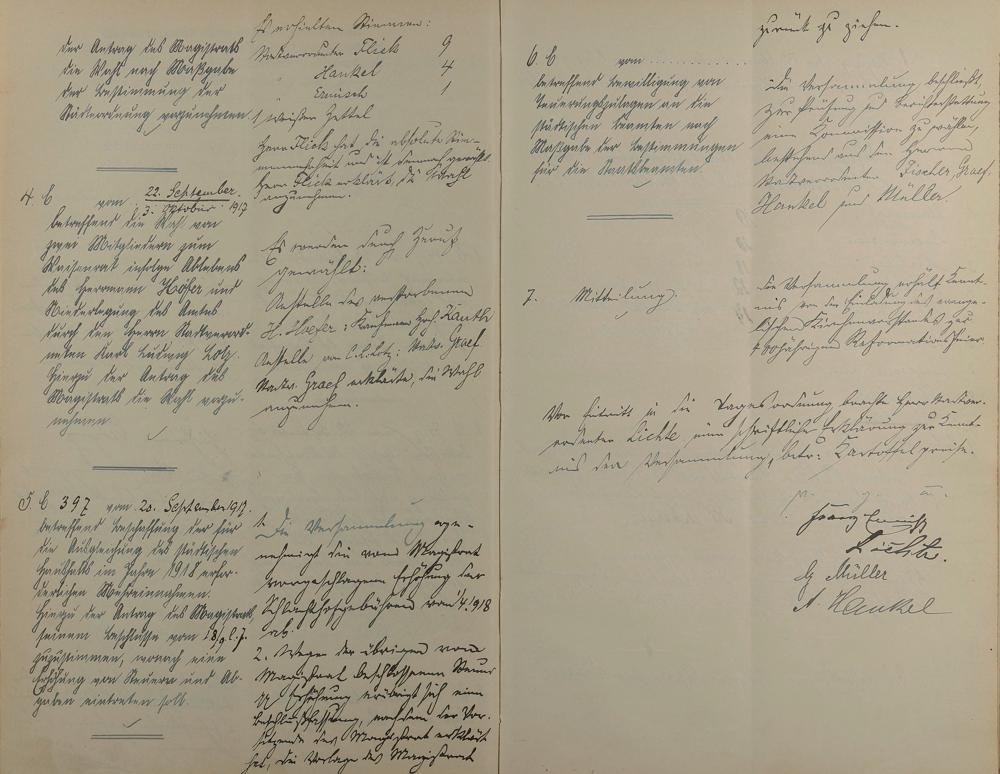 der Antrag des Magistrats
die Wahl nach Maßgabe
der Bestimmung der
Städteordnung vorzunehmen
Es erhielten Stimmen:
Stadtverordneter Flick 9
" Hankel 4
" Ernisch 1
1 weißer Zettel
Herr Flick hat die absolute Stim-
menmehrheit und ist demnach gewählt
Herr Flick erklärt, die Wahl
anzunehmen.
4. C vom 22. September
3. Oktober 1917
betreffend die Wahl von
zwei Mitgliedern zum
Waisenrat infolge Ablebens
des Herrmann Höfer und
Niederlegung des Amtes
durch den Herrn Stadtverord-
neten Karl Ludwig Lotz.
Hierzu der Antrag des
Magistrats die Wahl vorzu-
nehmen
Es werden durch Zuruf
gewählt:
Anstelle des verstorbenen
H. Hoefer: Kaufmann Hch. Kauth
Anstelle von C. L. Lotz: Stadtv. Graef
Stadtv. Graef erklärte, die Wahl
anzunehmen.
5. C 397 vom 20. September 1917.
betreffend Beschaffung der für
die Ausgleichung des städtischen
Haushalts im Jahre 1918 erfor-
derlichen Mehreinnahmen.
Hierzu der Antrag des Magistrats,
seinem Beschlusse vom 18/9 l. J.
zuzustimmen, wonach eine
Erhöhung von Steuern und Ab-
gaben eintreten soll.
1. Die Versammlung nge-
nehmigt die vom Magistrat
vorgeschlagene Erhöhung der
Schlachthofgebühren vom 1/4. 1918
ab.
2. Wegen der übrigen vom
Magistrat beschlossenen Steuer
Erhöhung erübrigt sich eine
Beschlußfassung, nachdem der Vor-
sitzende des Magistrat erklärt
hat, die Vorlage des Magistrat
zurück zu ziehen.
6. C vom ............
betreffend Bewilligung von
Teuerungszulagen an die
städtischen Beamten nach
Maßgabe der Bestimmungen
für die Staatsbeamten.
Die Versammlung beschließt,
zur Prüfung und Berichterstattung
eine Kommission zu wählen,
bestehend aus den Herren
Stadtverordneten Fischer, Graef,
Hankel und Müller.
7. Mitteilung.
Die Versammlung erhält Kennt-
nis von der Einladung des evange-
lischen Kirchenvorstandes zur
400jährigen Reformationsfeier
Vor Eintritt in die Tagesordnung brachte Herr Stadtver-
ordneter Lichte eine schriftliche Erklärung zur Kennt-
nis der Versammlung, betr: Kartoffelpreise.
v. g. u.
Franz Ernisch
Lichte.
Müller
A. Hankel